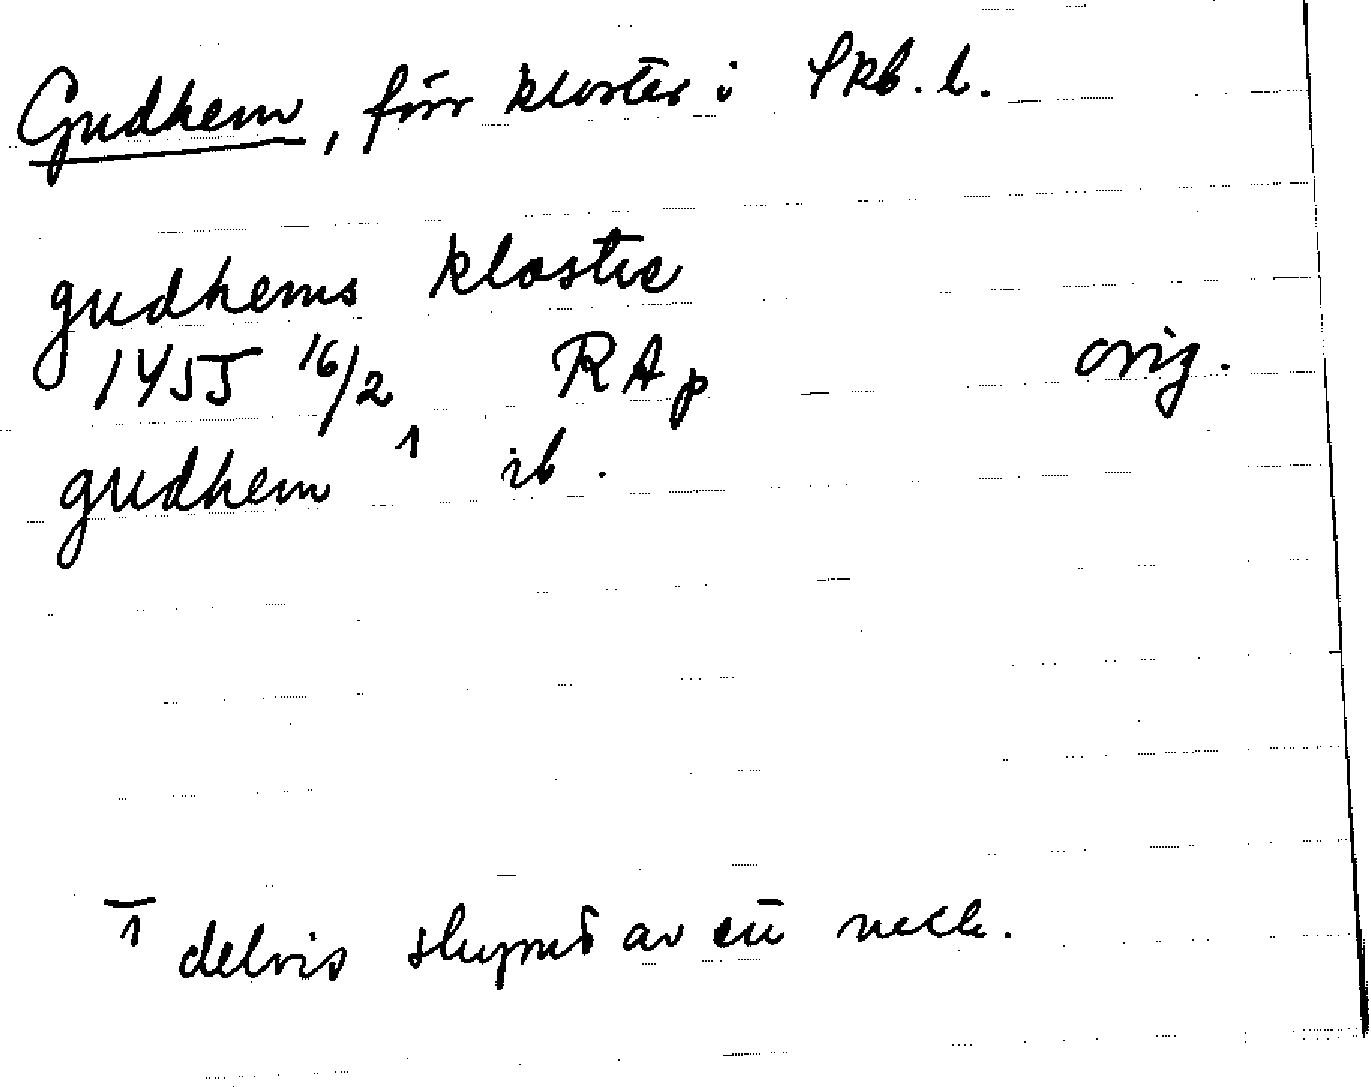 Gudhem, förr kloster i Skb. l.
gudhems klostre
1455 16/2 RAp orig.
gudhem 1 ib.
1 delvis skymd av ett veck.